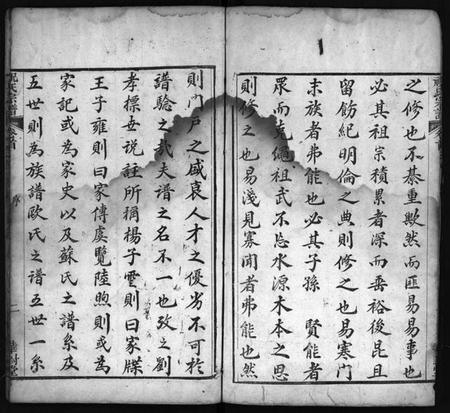 之修也不綦重歟然而匪易易事也
必其祖宗積累者深而垂裕後昆且
留飭紀明倫之典則修之也易寒門
末族者弗能也必其子孫 賢能者
眾而克繩祖武不忘水源木本之思
則修之也易淺見寡聞者弗能也然
則門戶之盛衰人才之優劣不可於
譜驗之哉夫譜之名不一也攷之劉
孝標世說註所稱揚子雲則曰家牒
王子雍則曰家傳虞覽陸煦則或為
家記或為家史以及蘇氏之譜系及
五世則為族譜歐氏之譜五世一系
氏宗譜
卷首
序
二